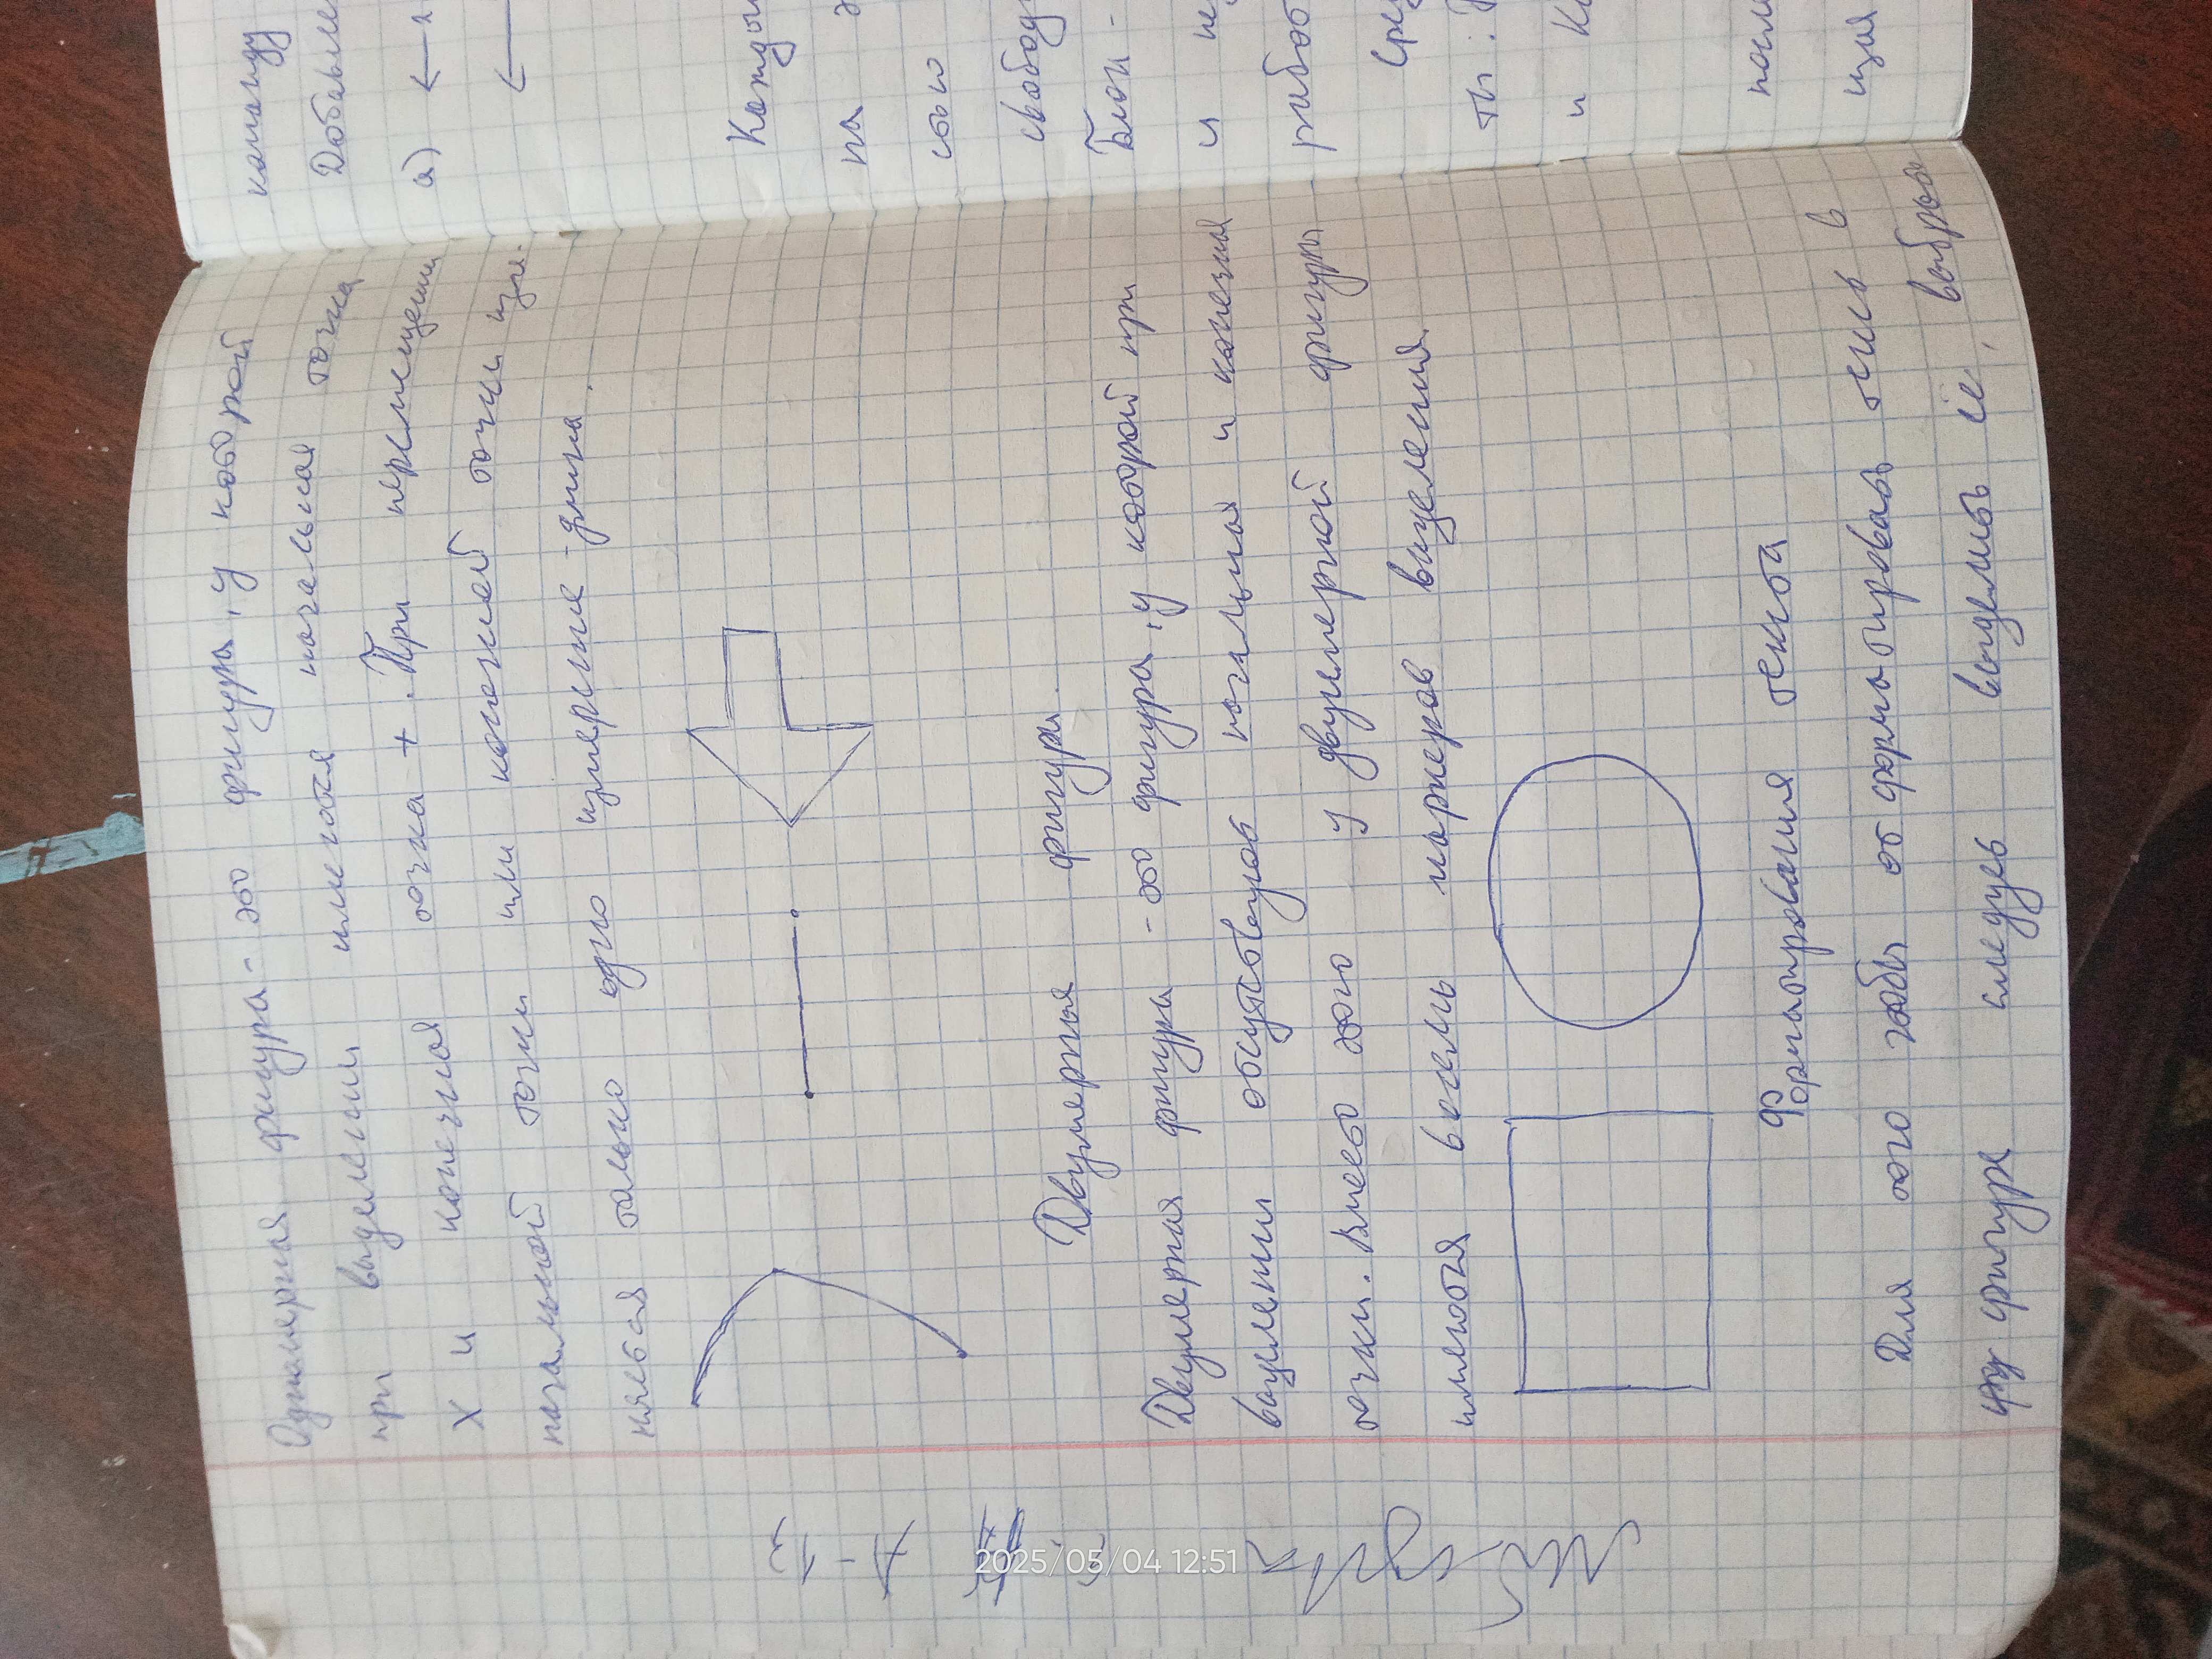 Одномерная фигура - это фигура, у которой
при выделении имеются начальная точка
х и конечная точка +. При перемещении
начальной точки или конечной точки изме-
няется только одно измерение - длина.
Двумерная фигура.
Двумерная фигура - это фигура, у которой при
выделении отсутствуют начальная и конечная
точки. Вместо этого у двумерной фигуры
имеются восемь маркеров выделения
Форматирования текста
Для того чтобы от форматировать текс в
фигуре следуеь выделить её, выбрав
команду
Добавле
а) ←
←
Кажды
на э
сью
свобод
Блок -
и не
работ
Сре
ты:
и Ко
посл
щая
2025/05/04 12:51